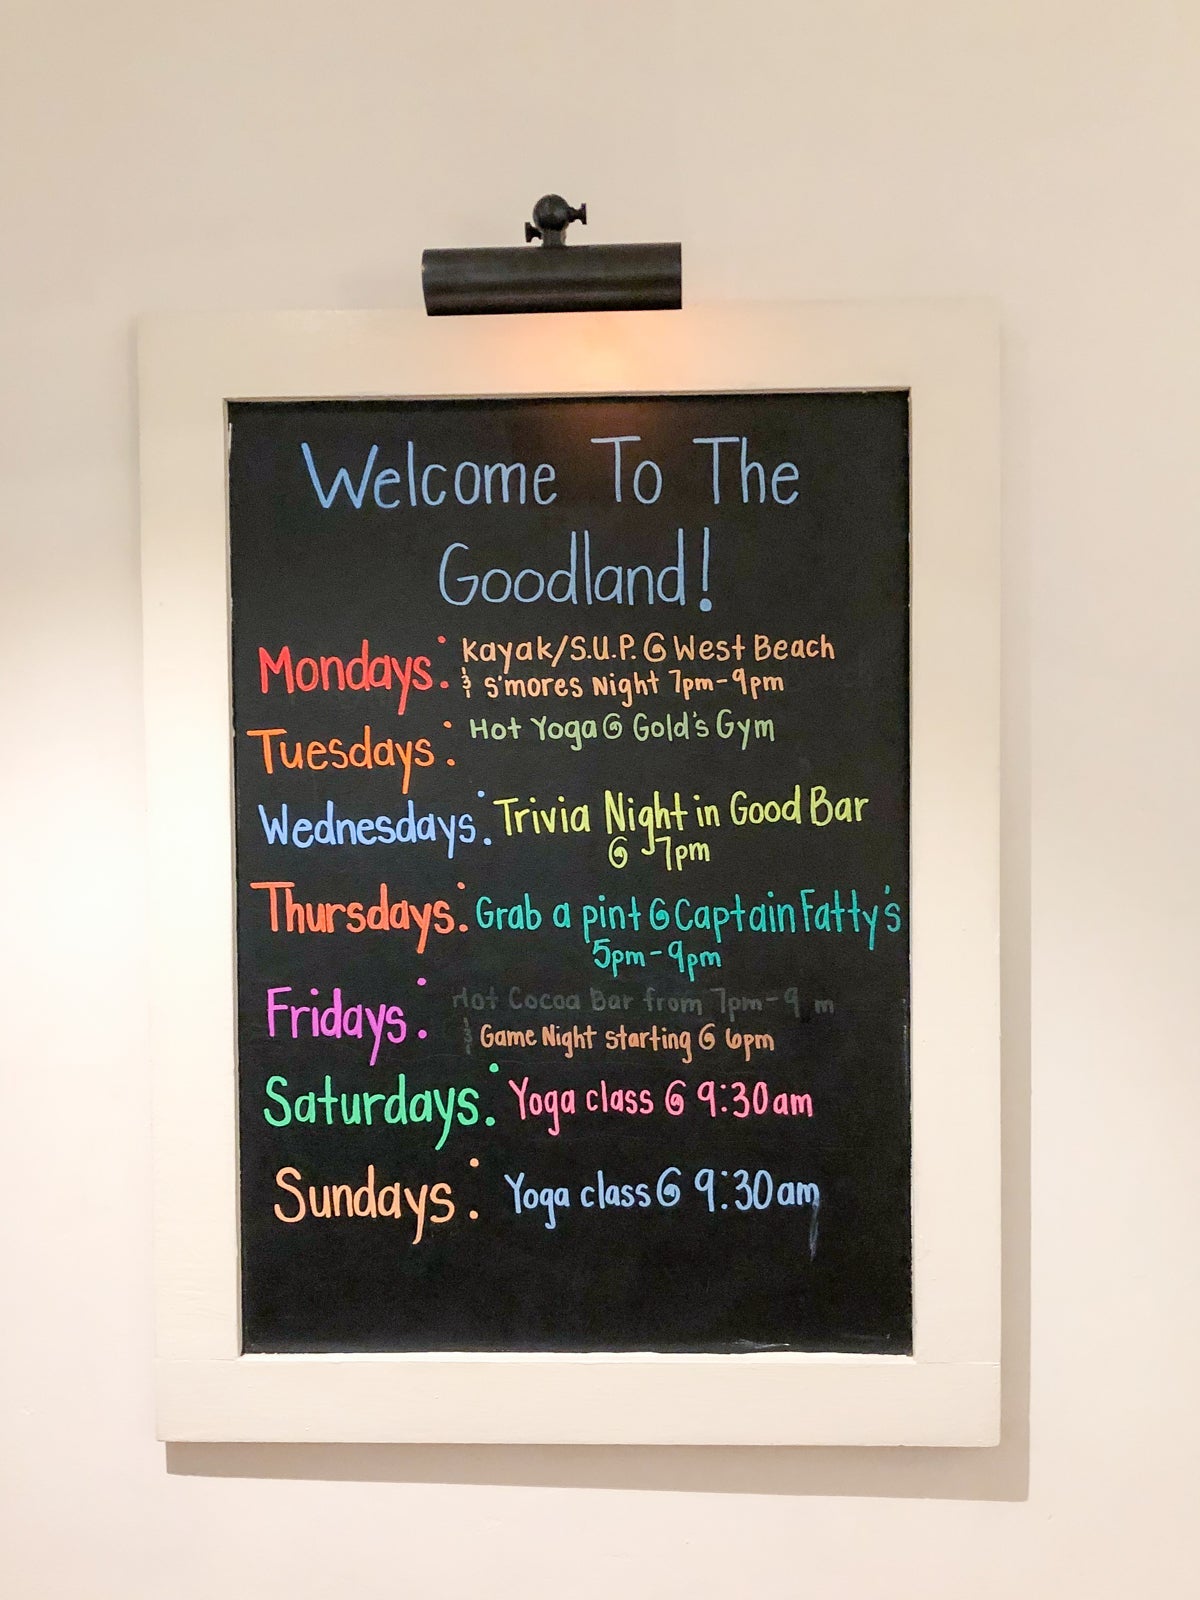 Welcome To The
Goodland!
Mondays: Kayak/S.U.P. @ West Beach
& S'mores Night 7pm-9pm
Tuesdays: Hot Yoga @ Gold's Gym
Wednesdays: Trivia Night in Good Bar
@ 7pm
Thursdays: Grab a pint @ Captain Fatty's
5pm-9pm
Fridays: Hot Cocoa Bar from 7pm-9 m
& Game Night starting @ 6pm
Saturdays: Yoga class @ 9:30am
Sundays: Yoga class @ 9:30am